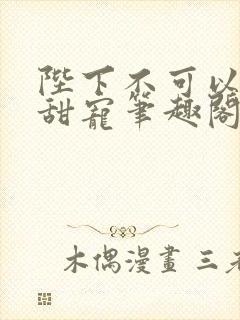 陛下不可以
甜寵筆趣閣
木偶漫畫 三